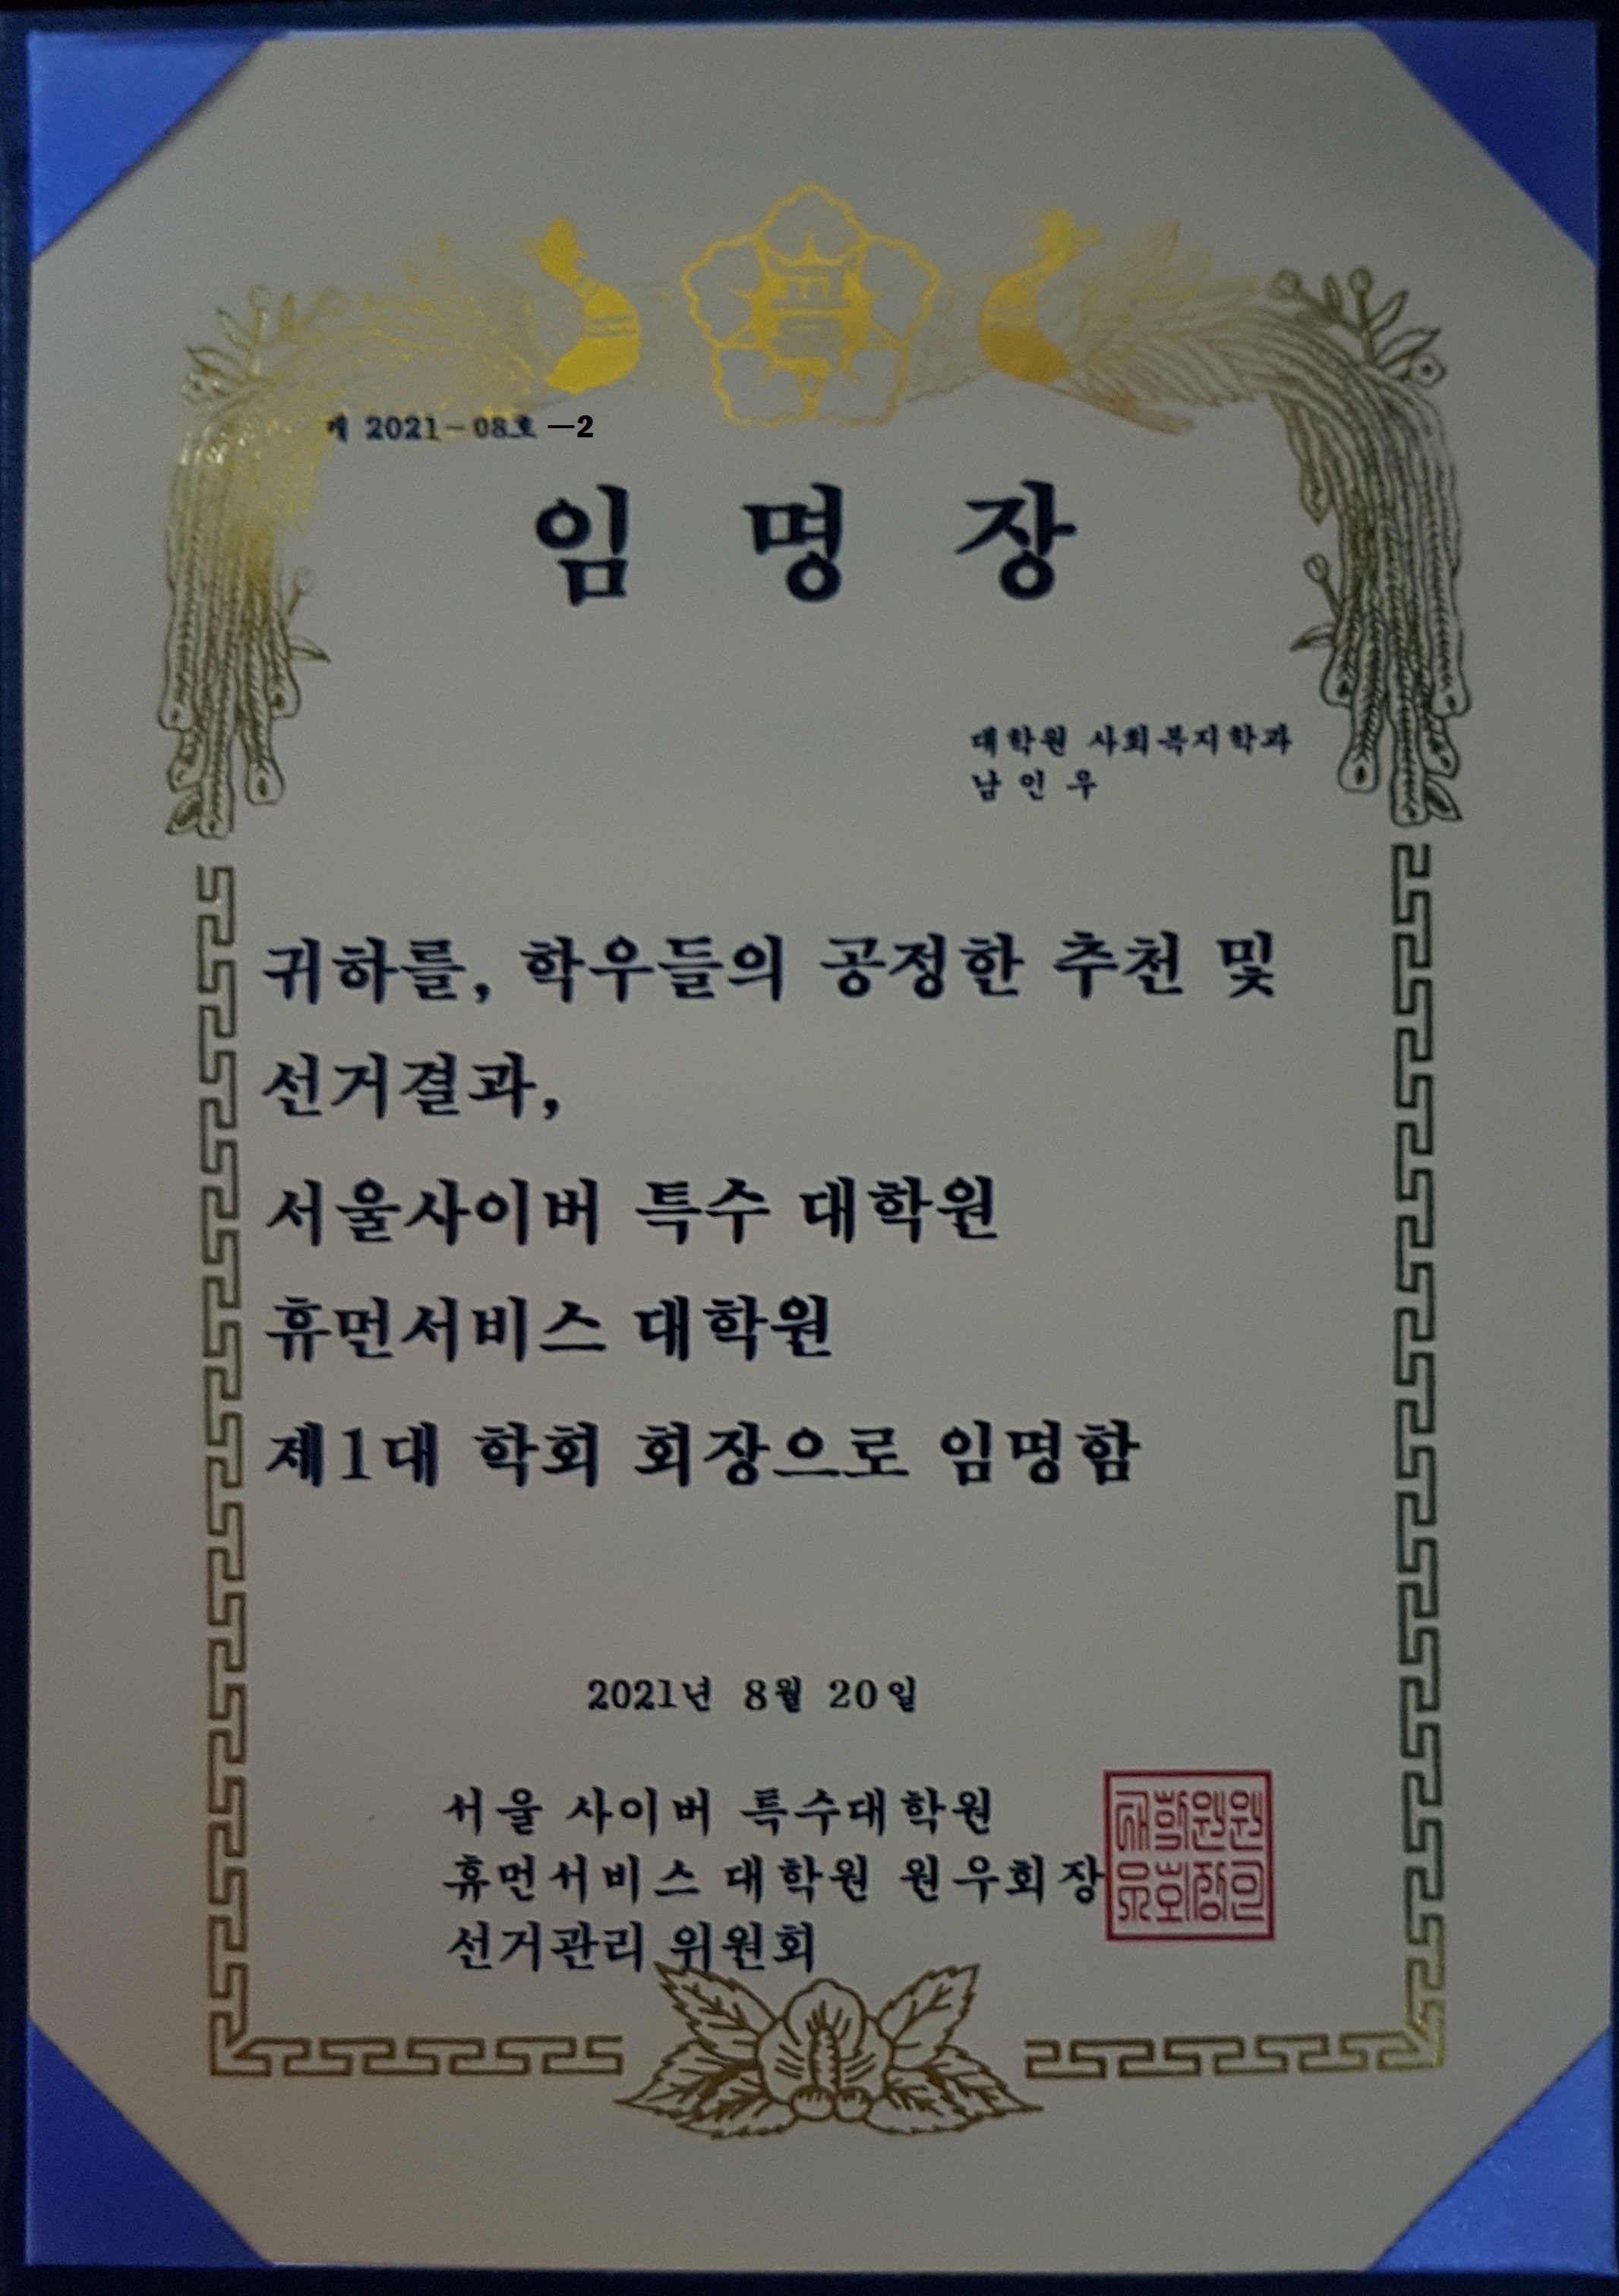 제 2021-08호 -2
임 명 장
대학원 사회복지학과
남 인 우
귀하를, 학우들의 공정한 추천 및
선거결과,
서울사이버 특수 대학원
휴먼서비스 대학원
제1대 학회 회장으로 임명함
2021년 8월 20일
서울 사이버 특수대학원
휴먼서비스 대학원 원우회장
선거관리 위원회